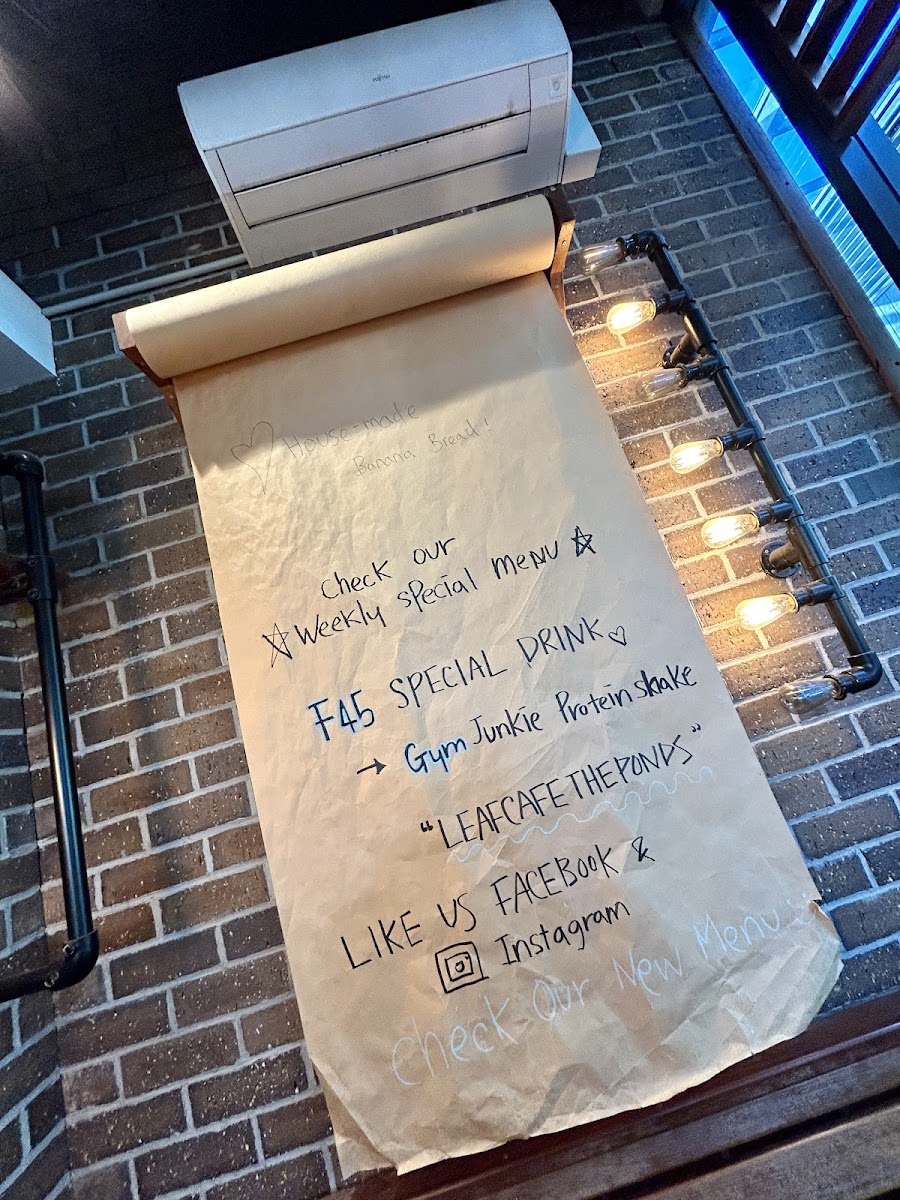 FUJITSU
House-made
Banana Bread!
Check our
Weekly special menu
F45 SPECIAL DRINK
→ Gym Junkie Protein shake
"LEAFCAFETHEPONDS"
LIKE US FACEBOOK &
Instagram
Check Our New Menu :